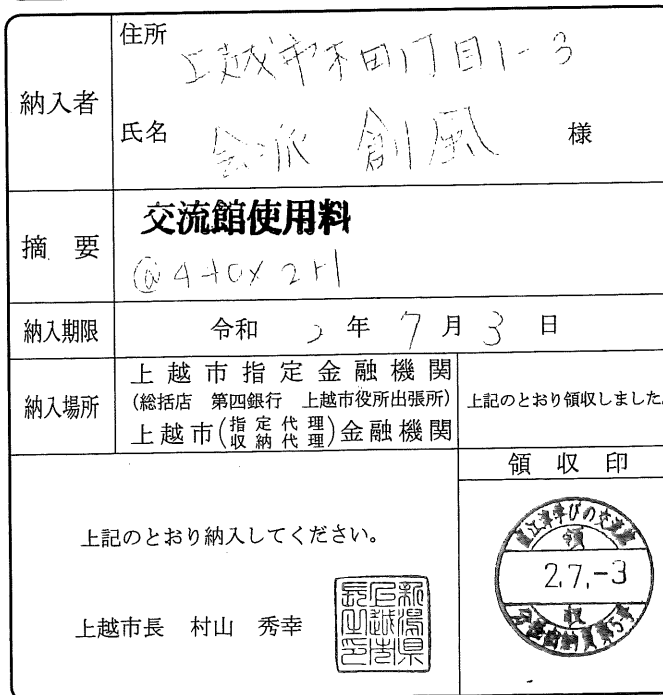 納入者
住所
上越市木田1丁目1-3
氏名
会派 創風 様
摘要
交流館使用料
@440×2H
納入期限
令和 2 年 7 月 3 日
納入場所
上越市指定金融機関
(総括店 第四銀行 上越市役所出張所)
上越市(指定代理 収納代理)金融機関
上記のとおり領収しました。
領収印
上記のとおり納入してください。
上越市長 村山 秀幸
新潟県上越市長之印
直江津学びの交流館
領
2.7.-3
収